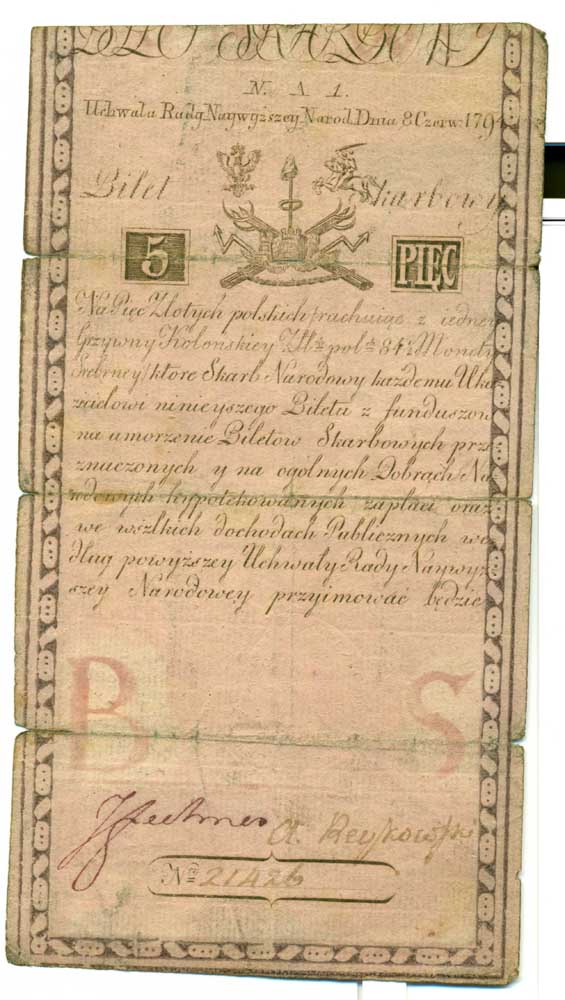 BILET SKARBOWY
N. A 1.
Uchwała Rady Naywyższey Narod. Dnia 8 Czerw. 1794
Bilet Skarbowy
5 PIĘC
Na Pięc Złotych polskich rachuiąc z iedney
Grzywny Kolońskiey Zł. pol. 84½ Monety
Srebrney, ktore Skarb Narodowy każdemu Uka-
zicielowi ninieyszego Biletu z funduszow
na umorzenie Biletow Skarbowych prze-
znaczonych y na ogólnych Dobrach Na-
rodowych hypotekowanych zapłaci oraz
we wszlkich dochodach Publicznych we-
dług powyższey Uchwały Rady Naywyż-
szey Narodowey przyimować będzie
B S
A. Reykowski
No 21426